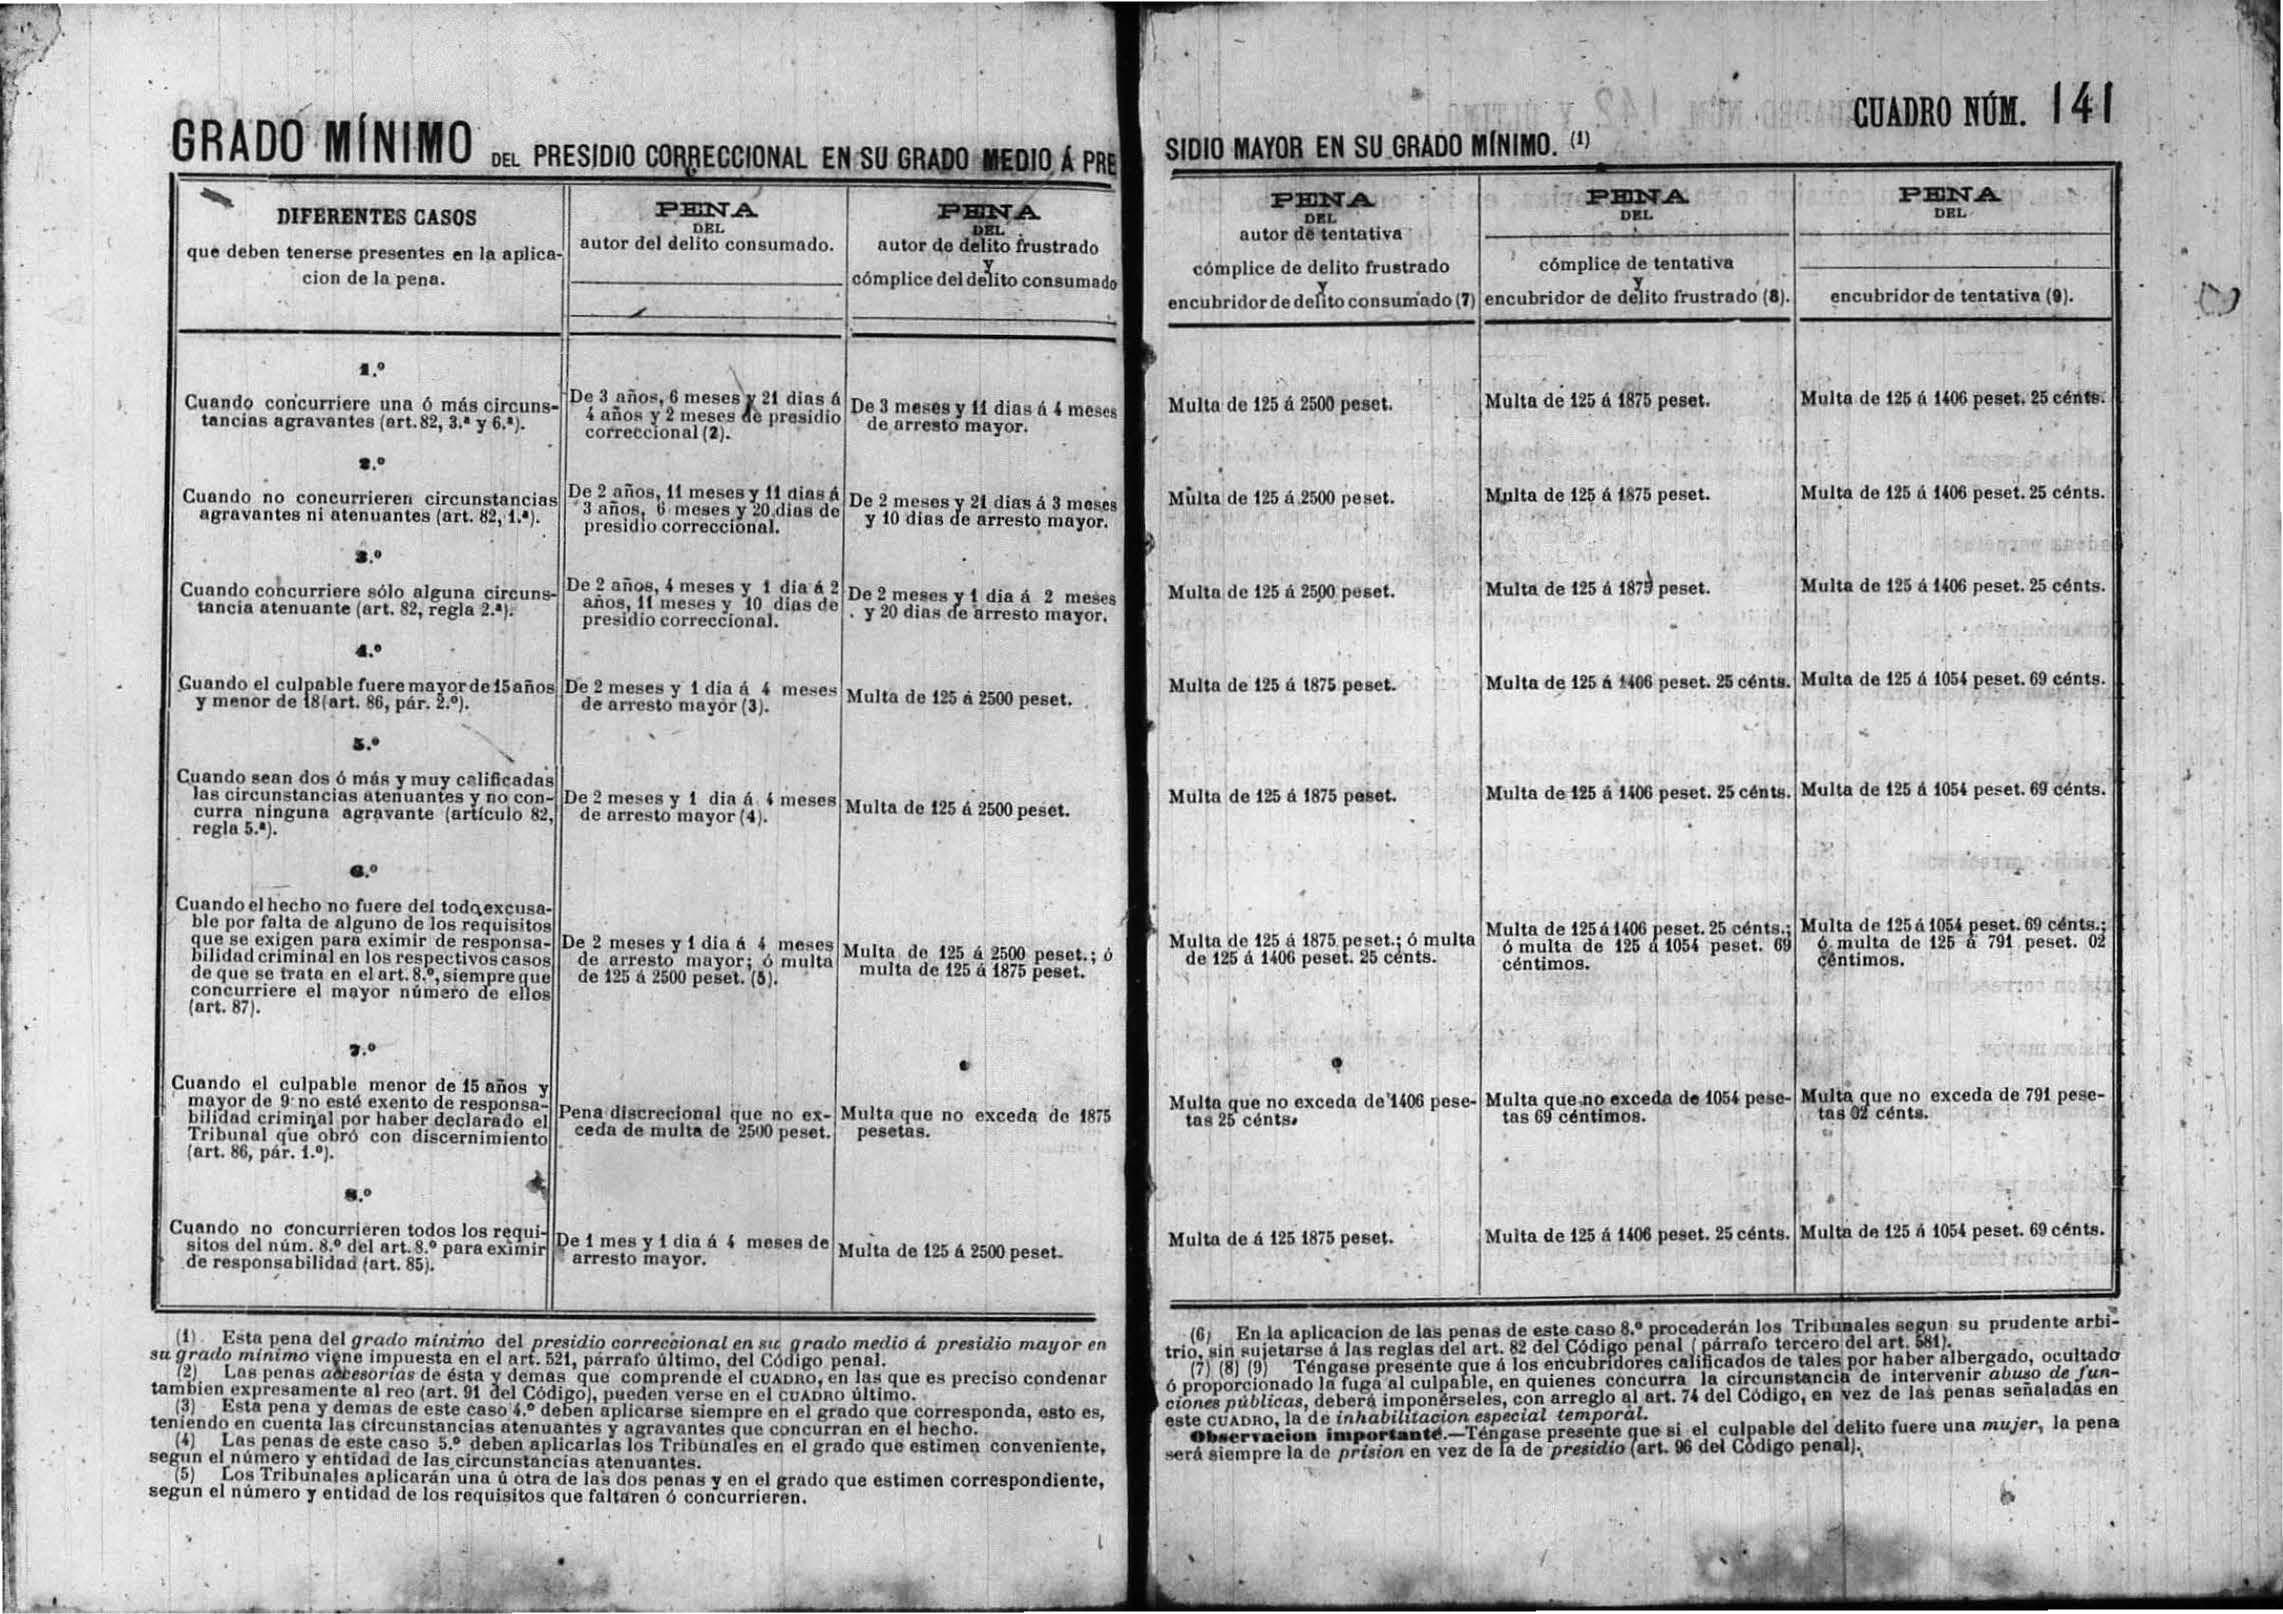 CUADRO NÚM. 141
GRADO MÍNIMO DEL PRESIDIO CORRECCIONAL EN SU GRADO MEDIO Á PRE
SIDIO MAYOR EN SU GRADO MÍNIMO. (1)
DIFERENTES CASOS
que deben tenerse presentes en la aplica-
cion de la pena.
PENA
DEL
autor del delito consumado.
PENA
DEL
autor de delito frustrado
Y
cómplice del delito consumado
PENA
DEL
autor de tentativa
cómplice de delito frustrado
Y
encubridor de delito consumado (7)
PENA
DEL
cómplice de tentativa
Y
encubridor de delito frustrado (8).
PENA
DEL
encubridor de tentativa (9).
1.º
Cuando concurriere una ó más circuns-
tancias agravantes (art. 82, 3.ª y 6.ª).
De 3 años, 6 meses y 21 dias á
4 años y 2 meses de presidio
correccional (2).
De 3 meses y 11 dias á 4 meses
de arresto mayor.
Multa de 125 á 2500 peset.
Multa de 125 á 1875 peset.
Multa de 125 á 1406 peset. 25 cénts.
2.º
Cuando no concurrieren circunstancias
agravantes ni atenuantes (art. 82, 1.ª).
De 2 años, 11 meses y 11 dias á
3 años, 6 meses y 20 dias de
presidio correccional.
De 2 meses y 21 dias á 3 meses
y 10 dias de arresto mayor.
Multa de 125 á 2500 peset.
Multa de 125 á 1875 peset.
Multa de 125 á 1406 peset. 25 cénts.
3.º
Cuando concurriere sólo alguna circuns-
tancia atenuante (art. 82, regla 2.ª).
De 2 años, 4 meses y 1 dia á 2
años, 11 meses y 10 dias de
presidio correccional.
De 2 meses y 1 dia á 2 meses
y 20 dias de arresto mayor.
Multa de 125 á 2500 peset.
Multa de 125 á 1875 peset.
Multa de 125 á 1406 peset. 25 cénts.
4.º
Cuando el culpable fuere mayor de 15 años
y menor de 18 (art. 86, pár. 2.º).
De 2 meses y 1 dia á 4 meses
de arresto mayor (3).
Multa de 125 á 2500 peset.
Multa de 125 á 1875 peset.
Multa de 125 á 1406 peset. 25 cénts.
Multa de 125 á 1054 peset. 69 cénts.
5.º
Cuando sean dos ó más y muy calificadas
las circunstancias atenuantes y no con-
curra ninguna agravante (artículo 82,
regla 5.ª).
De 2 meses y 1 dia á 4 meses
de arresto mayor (4).
Multa de 125 á 2500 peset.
Multa de 125 á 1875 peset.
Multa de 125 á 1406 peset. 25 cénts.
Multa de 125 á 1054 peset. 69 cénts.
6.º
Cuando el hecho no fuere del todo excusa-
ble por falta de alguno de los requisitos
que se exigen para eximir de responsa-
bilidad criminal en los respectivos casos
de que se trata en el art. 8.º, siempre que
concurriere el mayor número de ellos
(art. 87).
De 2 meses y 1 dia á 4 meses
de arresto mayor; ó multa
de 125 á 2500 peset. (5).
Multa de 125 á 2500 peset.; ó
multa de 125 á 1875 peset.
Multa de 125 á 1875 peset.; ó multa
de 125 á 1406 peset. 25 cénts.
Multa de 125 á 1406 peset. 25 cénts.;
ó multa de 125 á 1054 peset. 69
céntimos.
Multa de 125 á 1054 peset. 69 cénts.;
ó multa de 125 á 791 peset. 02
céntimos.
7.º
Cuando el culpable menor de 15 años y
mayor de 9 no esté exento de responsa-
bilidad criminal por haber declarado el
Tribunal que obró con discernimiento
(art. 86, pár. 1.º).
Pena discrecional que no ex-
ceda de multa de 2500 peset.
Multa que no exceda de 1875
pesetas.
Multa que no exceda de 1406 pese-
tas 25 cénts.
Multa que no exceda de 1054 pese-
tas 69 céntimos.
Multa que no exceda de 791 pese-
tas 02 cénts.
8.º
Cuando no concurrieren todos los requi-
sitos del núm. 8.º del art. 8.º para eximir
de responsabilidad (art. 85).
De 1 mes y 1 dia á 4 meses de
arresto mayor.
Multa de 125 á 2500 peset.
Multa de á 125 1875 peset.
Multa de 125 á 1406 peset. 25 cénts.
Multa de 125 á 1054 peset. 69 cénts.
(1) Esta pena del grado mínimo del presidio correccional en su grado medio á presidio mayor en
su grado mínimo viene impuesta en el art. 521, párrafo último, del Código penal.
(2) Las penas accesorias de ésta y demas que comprende el CUADRO, en las que es preciso condenar
tambien expresamente al reo (art. 91 del Código), pueden verse en el CUADRO último.
(3) Esta pena y demas de este caso 4.º deben aplicarse siempre en el grado que corresponda, esto es,
teniendo en cuenta las circunstancias atenuantes y agravantes que concurran en el hecho.
(4) Las penas de este caso 5.º deben aplicarlas los Tribunales en el grado que estimen conveniente,
segun el número y entidad de las circunstancias atenuantes.
(5) Los Tribunales aplicarán una ú otra de las dos penas y en el grado que estimen correspondiente,
segun el número y entidad de los requisitos que faltaren ó concurrieren.
(6) En la aplicacion de las penas de este caso 8.º procederán los Tribunales segun su prudente arbi-
trio, sin sujetarse á las reglas del art. 82 del Código penal (párrafo tercero del art. 581).
(7) (8) (9) Téngase presente que á los encubridores calificados de tales por haber albergado, ocultado
ó proporcionado la fuga al culpable, en quienes concurra la circunstancia de intervenir abuso de fun-
ciones públicas, deberá imponérseles, con arreglo al art. 74 del Código, en vez de las penas señaladas en
este CUADRO, la de inhabilitacion especial temporal.
Observacion importante.—Téngase presente que si el culpable del delito fuere una mujer, la pena
será siempre la de prision en vez de la de presidio (art. 96 del Código penal).